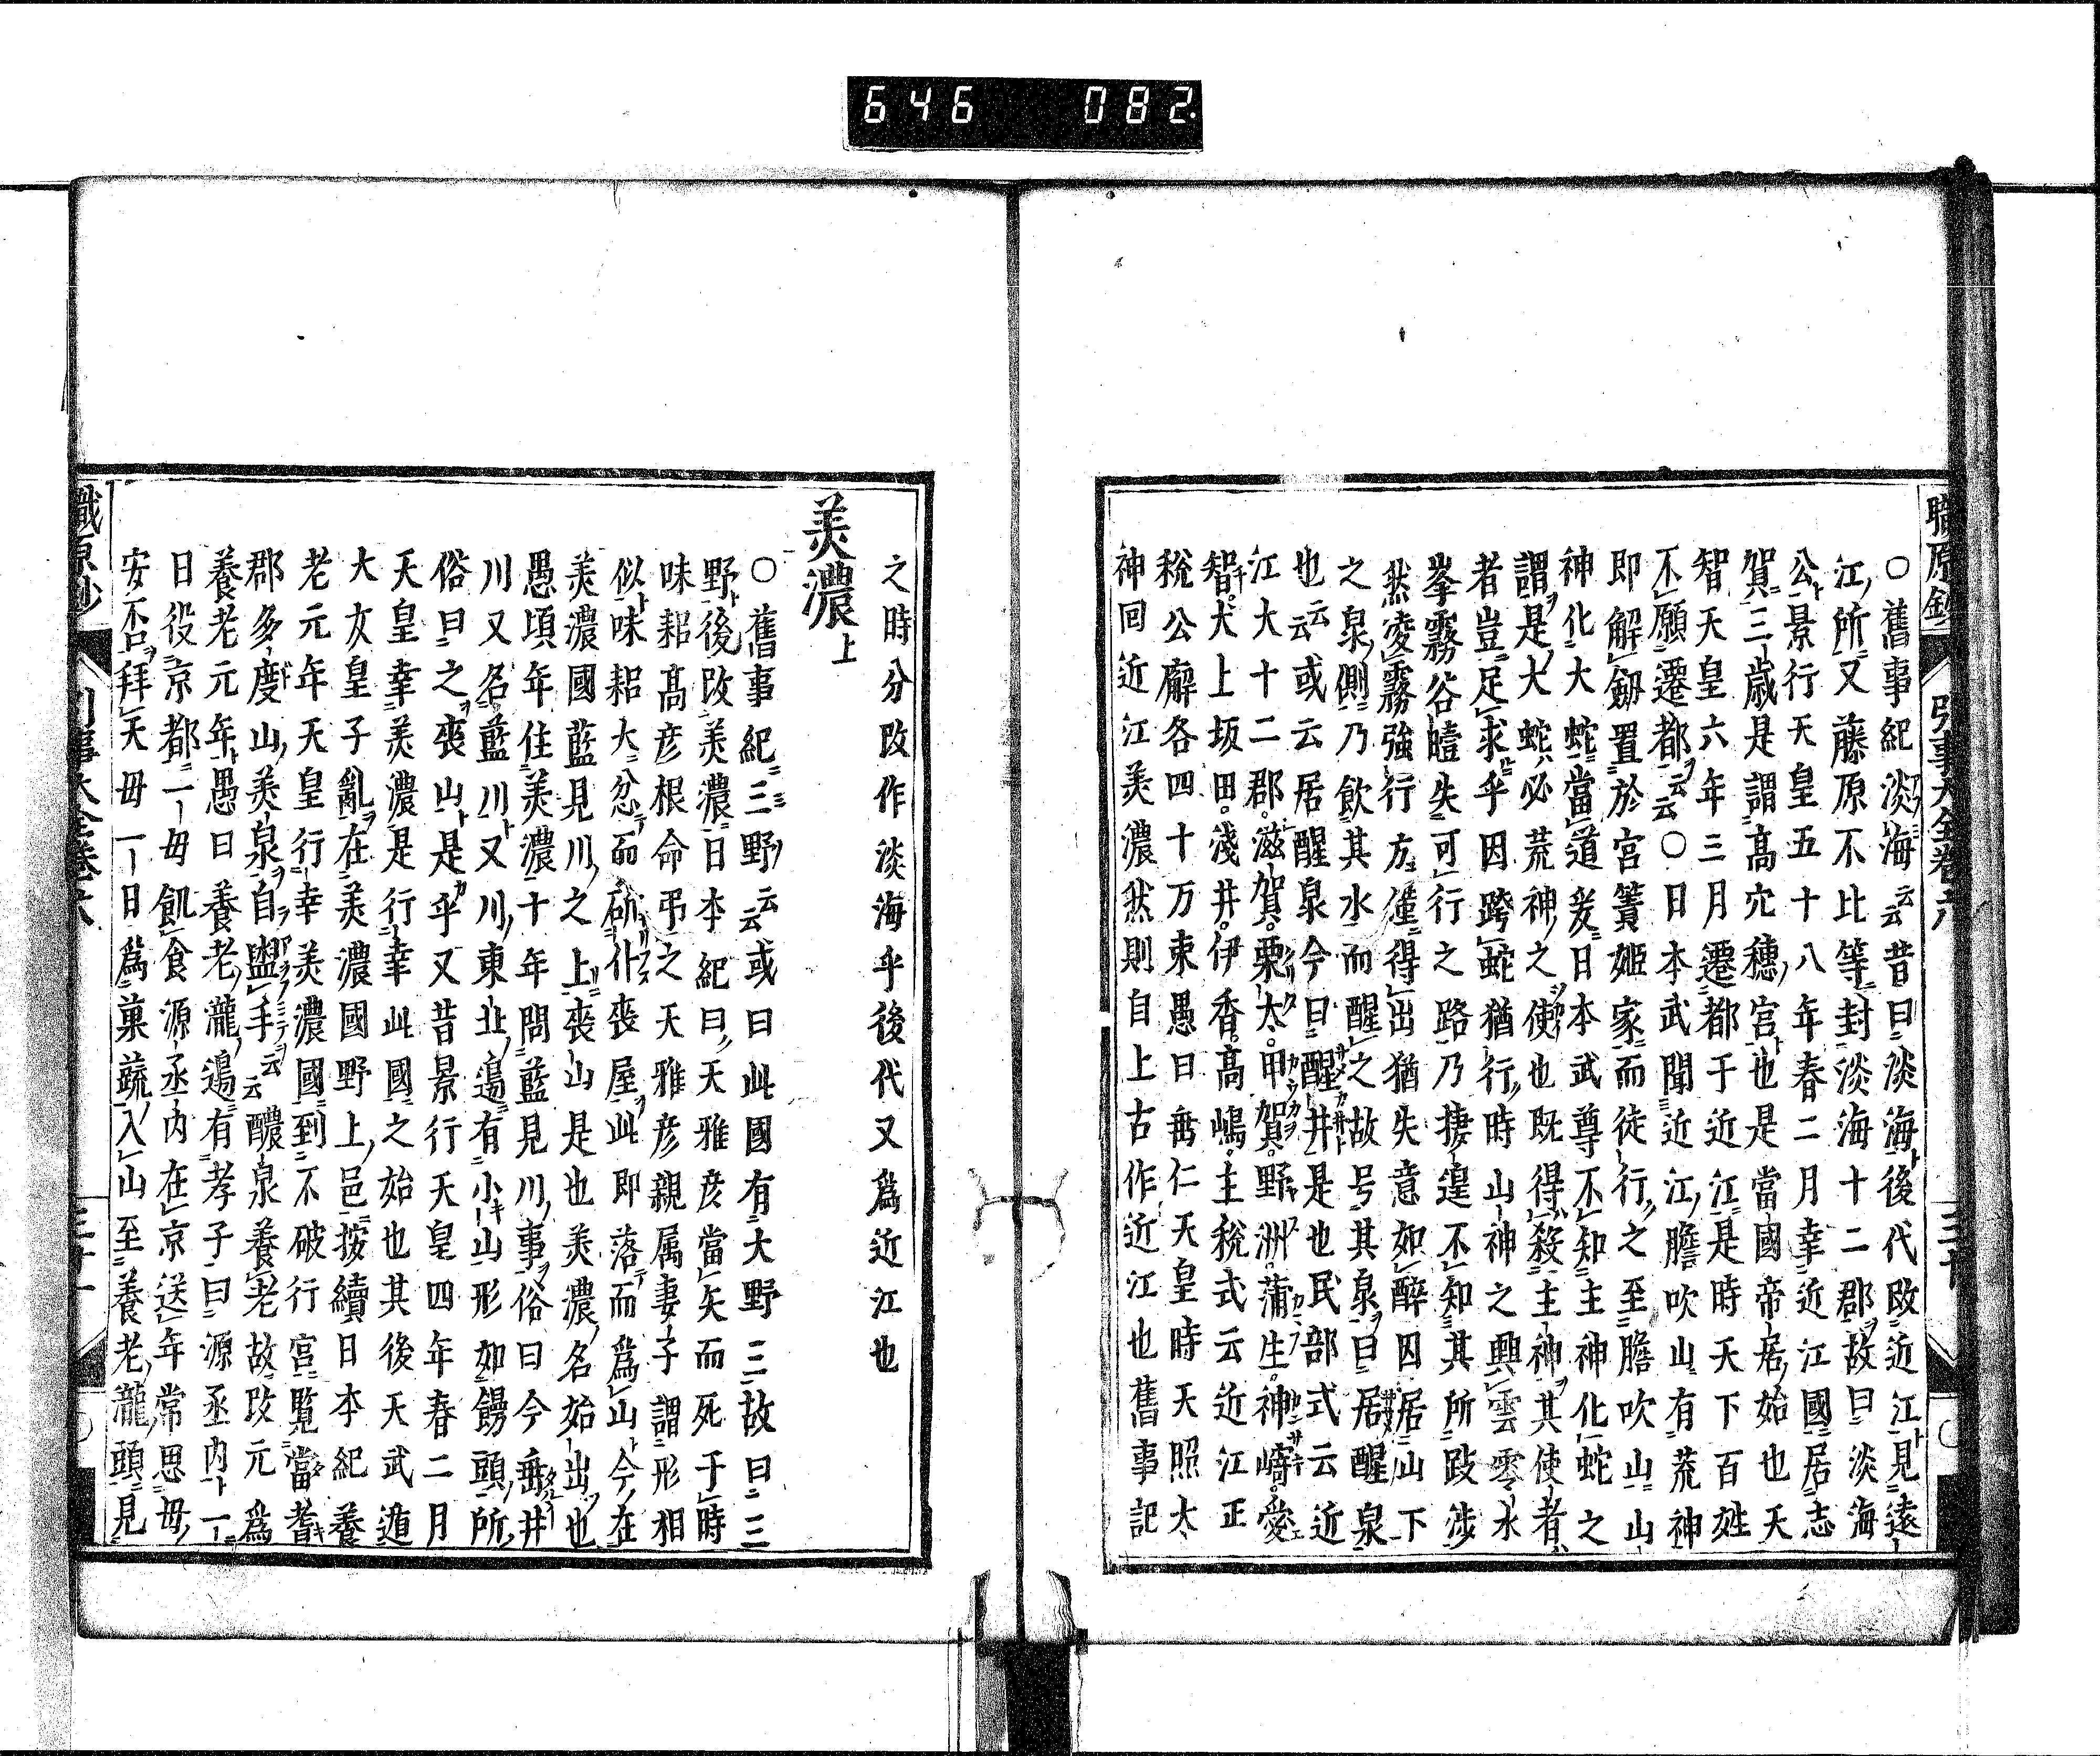 646 082
職原鈔 引事大全卷六
〇舊事紀淡海云云昔曰淡海後代改近江見遠
江所又藤原不比等封淡海十二郡故曰淡海
公景行天皇五十八年春二月幸近江國居志
賀三歳是謂髙穴穗宮也是當國帝居始也天
智天皇六年三月遷都于近江是時天下百姓
不願遷都云云〇日本武聞近江膽吹山有荒神
即解劔置於宮簀姬家而徒行之至膽吹山山
神化大蛇當道爰日本武尊不知主神化蛇之
謂是大蛇必荒神之使也既得殺主神其使者
者豈足求乎因跨蛇猶行時山神之興雲零水
峯霧谷曀失可行之路乃捿遑不知其所跋涉
然凌霧強行方僅得出猶失意如醉因居山下
之泉側乃飲其水而醒之故号其泉曰居醒泉
也云云或云居醒泉今曰醒井是也民部式云近
江大十二郡滋賀栗太甲賀野洲蒲生神﨑愛
智犬上坂田淺井伊香髙嶋主税式云近江正
税公廨各四十万束愚曰垂仁天皇時天照太
神回近江美濃然則自上古作近江也舊事記
之時分改作淡海乎後代又爲近江也
美濃上
〇舊事紀三野云云或曰此國有大野三故曰三
野後改美濃日本紀曰天雅彦當矢而死于時
味耜髙彦根命弔之天雅彦親属妻子謂形相
似味耜大忿而斫仆喪屋此即落而爲山今在
美濃國藍見川之上喪山是也美濃名始出也
愚頃年住美濃十年問藍見川事俗曰今垂井
川又名藍川又川東北邉有小山形如饅頭所
俗曰之喪山是乎又昔景行天皇四年春二月
天皇幸美濃是行幸此國之始也其後天武遁
大友皇子亂在美濃國野上邑按續日本紀養
老元年天皇行幸美濃國到不破行宮覧當耆
郡多度山美泉自盥手云云醴泉養老故改元爲
養老元年愚曰養老瀧邉有孝子曰源丞内一
日役京都一母飢食源丞内在京送年常思母
安否拜天毋一日爲菓蔬入山至養老瀧頭見
職原鈔 引事大全卷六 三十一